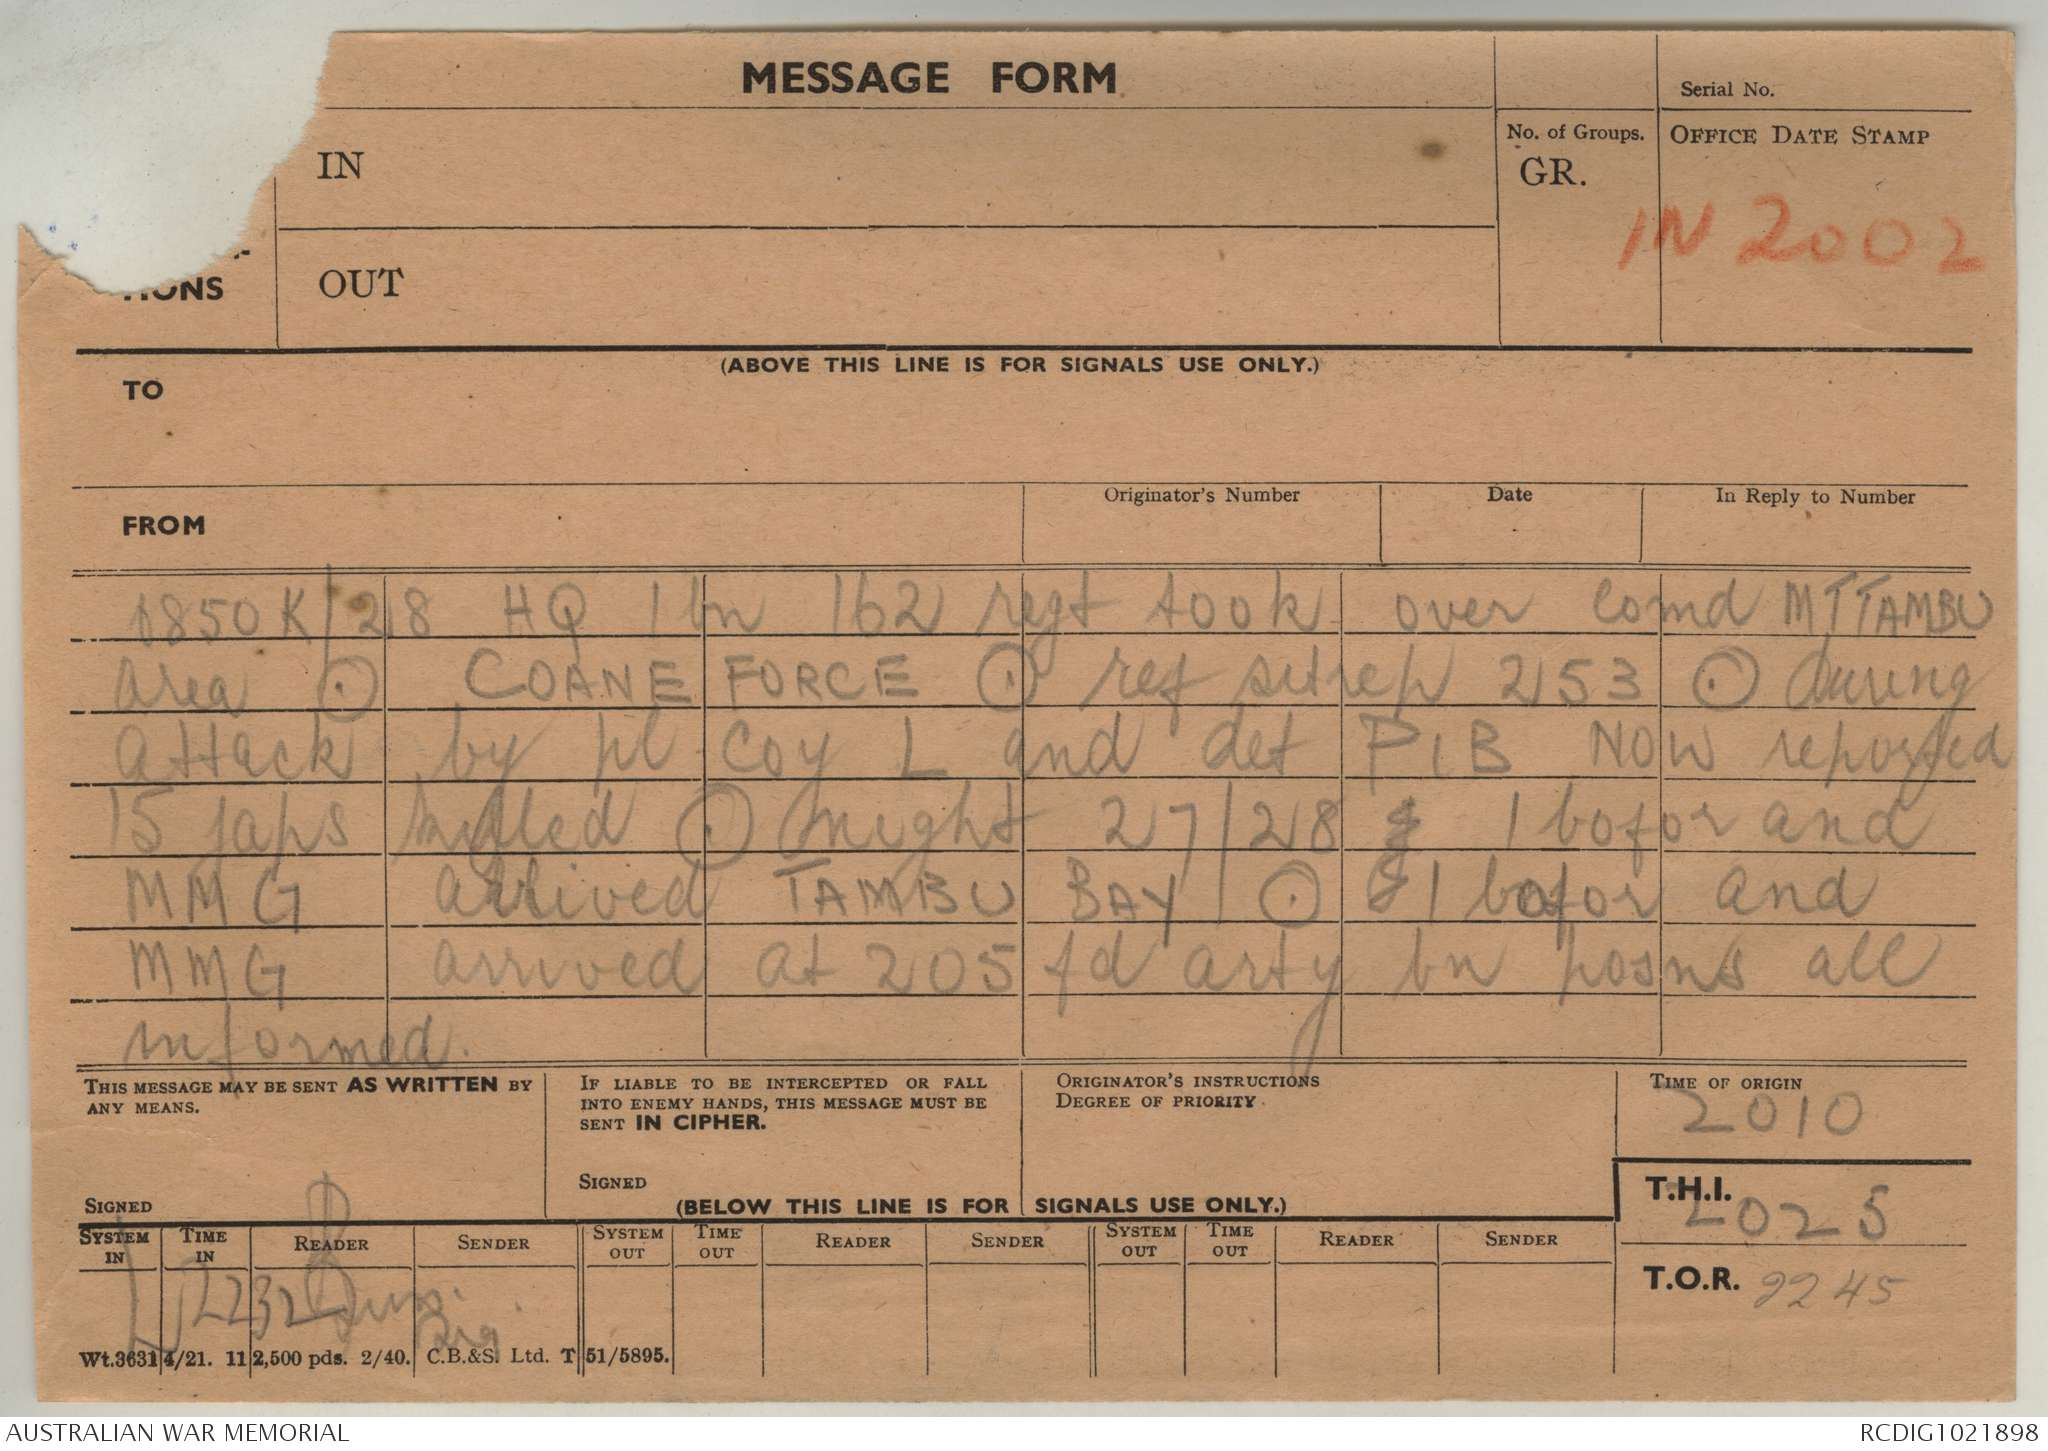 MESSAGE FORM
Serial No.
IN
No. of Groups.
GR.
OFFICE DATE STAMP
IN 2002
TIONS
OUT
(ABOVE THIS LINE IS FOR SIGNALS USE ONLY.)
TO
FROM
Originator's Number
Date
In Reply to Number
1850K/28 HQ 1 bn 162 regt took over comd MT TAMBU
area ⊙ COANE FORCE ⊙ ref sitrep 253 ⊙ during
attack by pl coy L and det PIB NOW reported
15 japs killed ⊙ night 27/28 1 bofor and
MMG arrived TAMBU BAY ⊙ 1 bofor and
MMG arrived at 205 fd arty bn posns all
informed.
THIS MESSAGE MAY BE SENT AS WRITTEN BY
ANY MEANS.
SIGNED
IF LIABLE TO BE INTERCEPTED OR FALL
INTO ENEMY HANDS, THIS MESSAGE MUST BE
SENT IN CIPHER.
SIGNED
ORIGINATOR'S INSTRUCTIONS
DEGREE OF PRIORITY
TIME OF ORIGIN
2010
T.H.I.
2025
T.O.R. 2245
(BELOW THIS LINE IS FOR SIGNALS USE ONLY.)
SYSTEM IN
TIME IN
READER
SENDER
SYSTEM OUT
TIME OUT
READER
SENDER
SYSTEM OUT
TIME OUT
READER
SENDER
2232
Sig
Wt.3631 4/21. 11 2,500 pds. 2/40. C.B.&S. Ltd. T 51/5895.
AUSTRALIAN WAR MEMORIAL
RCDIG1021898